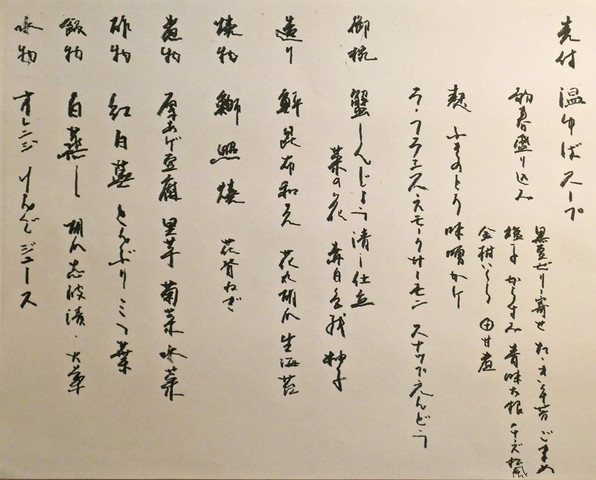 先付 温ゆばスープ
初春盛り込み
黒豆ゼリー寄せ 年昔 ごまめ
からすみ 青味大根 チーズ松風
金柑いくら 甘煮
麩 ふきのとう味噌かけ
ラ・フランススモークサーモン スナップえんどう
御椀 蟹しんじょう清し仕立
菜の花 柚子
造り 鮮 昆布和え 花丸胡瓜 生海苔
焼物 鰤照焼
煮物 厚あげ豆腐 里芋 菊菜 水菜
酢物 紅白 とんぶり ミつ葉
飯物 白蒸し 胡瓜志波漬・大葉
水物 オレンジ ジュース